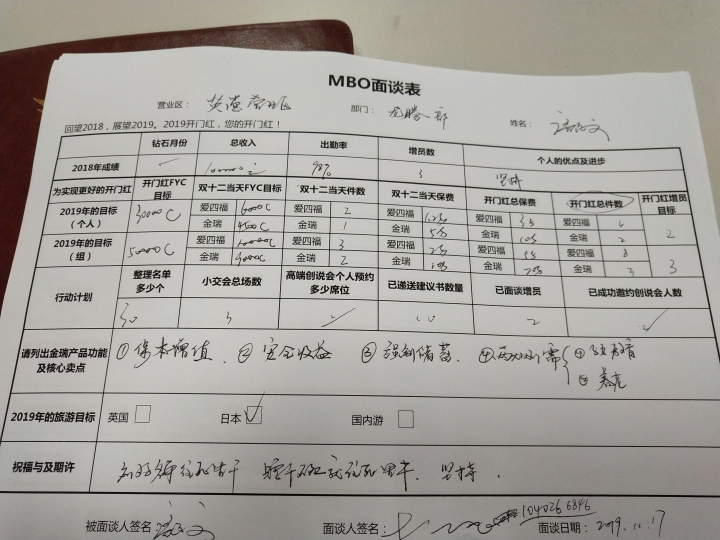 MBO面谈表
营业区： 英德营业区 部门： 龙腾部 姓名：
回望2018，展望2019。2019开门红，您的开门红！
钻石月份 总收入 出勤率 增员数 个人的优点及进步
2018年成绩 100000元 98% 3 坚持
为实现更好的开门红 开门红FYC目标 双十二当天FYC目标 双十二当天件数 双十二当天保费 开门红总保费 开门红总件数 开门红增员目标
2019年的目标（个人） 30000C 爱四福 6000C 爱四福 2 爱四福 1.2万 爱四福 3万 爱四福 4 2
金瑞 4500C 金瑞 1 金瑞 5万 金瑞 10万 金瑞 2
2019年的目标（组） 50000C 爱四福 10000C 爱四福 3 爱四福 2万 爱四福 5万 爱四福 8 3
金瑞 9000C 金瑞 2 金瑞 10万 金瑞 20万 金瑞 3
行动计划 整理名单多少个 小交会总场数 高端创说会个人预约多少席位 已递送建议书数量 已面谈增员 已成功邀约创说会人数
30 3 ✓ 10 2 ✓
请列出金瑞产品功能及核心卖点 ①保本增值、 ②安全收益 ③强制储蓄、 ④ ①教育
②养老
2019年的旅游目标 英国 □ 日本 ☑ 国内游 □
祝福与及期许 坚持．
被面谈人签名： 面谈人签名： 1040266846 面谈日期： 2019.11.17